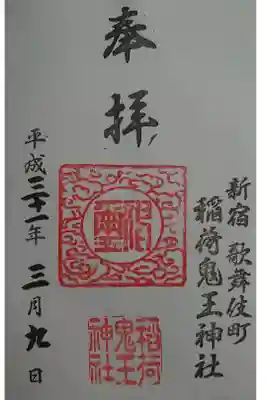 奉拝
新宿 歌舞伎町
稲荷鬼王神社
平成三十一年 三月九日
稲荷
鬼王
神社